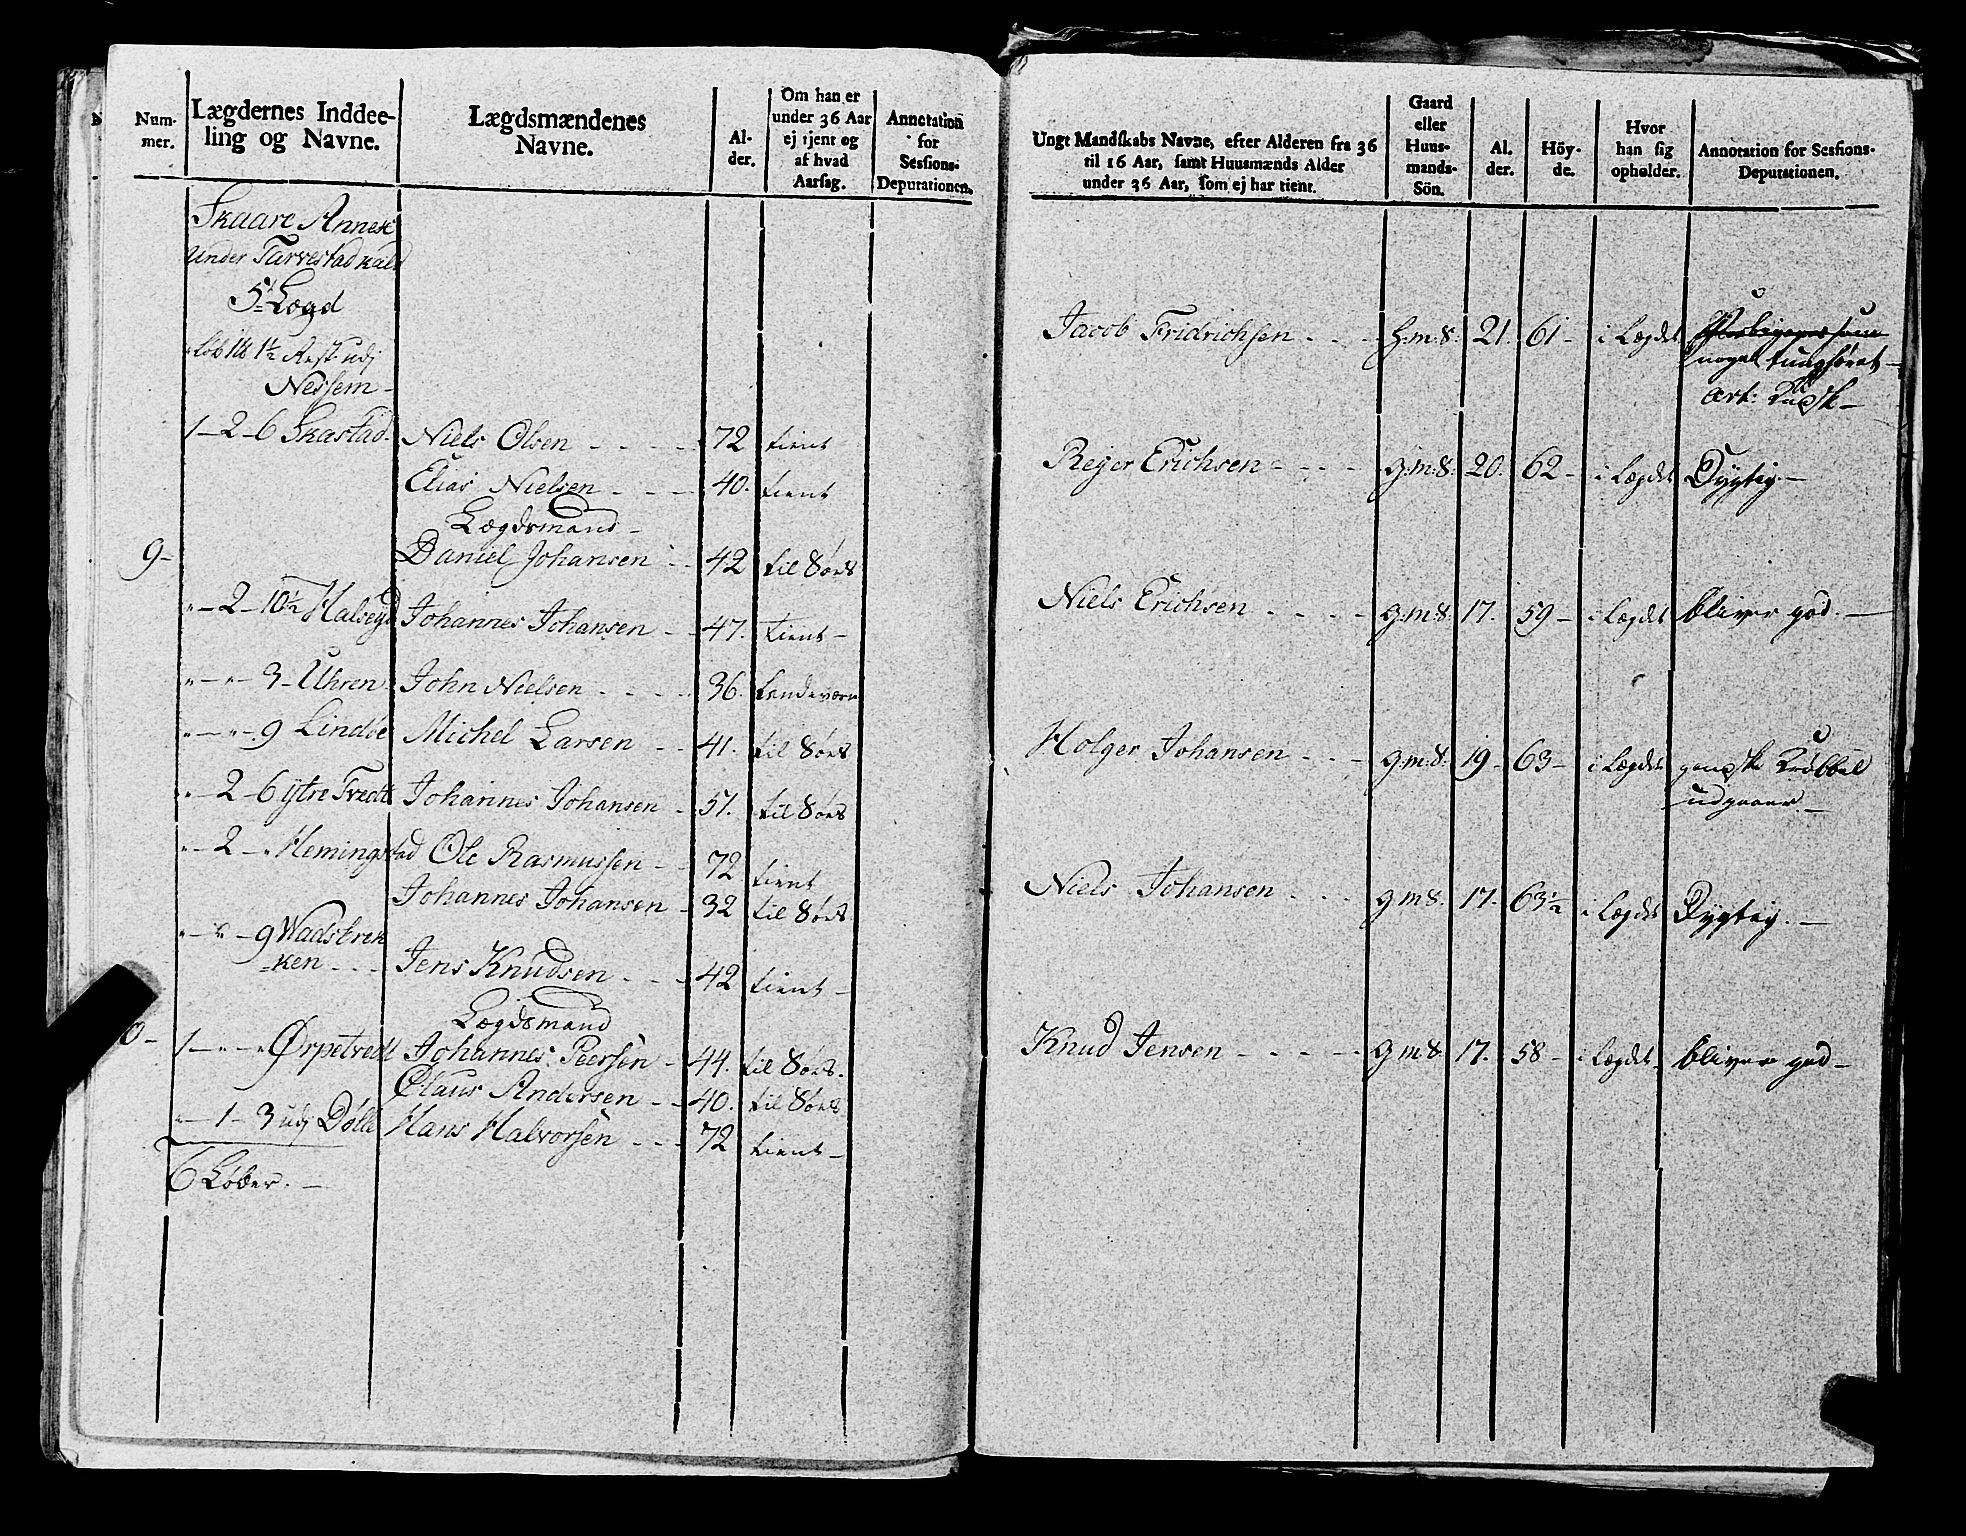 Num-
mer.
Lægdernes Inddee-
ling og Navne.
Lægdsmændenes
Navne.
Al-
der.
Om han er
under 36 Aar
ej tjent og
af hvad
Aarsag.
Annotation
for
Sessions-
Deputationen.
Skaare Annex
under Tarvestad kald
5te Lægd
Løb ... 1½ ... udj
Nessem-
1-2-6 Skastad- Niels Olsen - - - 72 tient
Elias Nielsen - - - 40. tient
Lægdsmand-
9- Daniel Johansen - - 42 til Søes
"-2-10½ Halseyd Johannes Johansen - - 47. tient-
"-"-3-Uhren John Nielsen - - - - 36. Landeværn
"-"-9 Lindøe Michel Larsen - - 41. til Søes
"-2-6 ytre Tvedt Johannes Johansen - 51. til Søes
"-2-" Hemingstad Ole Rasmussen - - 72 tient
Johannes Johansen - 32 til Søes
"-"-9 Wadsbrek
=ken - - - Jens Knudsen - - - 42 tient-
Lægdsmand
0- 1-"-" Ørpetvedt Johannes Peersen - 44. til Søes.
Olaus Andersen - - 40. til Søes
"-1-3 udj Dølle Hans Halvorsen - - - 72 tient-
6 Løber. -
Ungt Mandskabs Navne, efter Alderen fra 36
til 16 Aar, samt Huusmænds Alder
under 36 Aar, som ej har tient.
Gaard
eller
Huus-
mands-
Sön.
Al.
der.
Höy-
de.
Hvor
han sig
opholder.
Annotation for Sessions-
Deputationen.
Jacob Fridrichsen - - - - h:m:s: 21. 61- i Lægdet
noget tunghøret-
art: Kudsk-
Rejer Erichsen - - - - g:m:s. 20. 62- i Lægdet Dygtig.-
Niels Erichsen - - - - g:m:s 17. 59- i Lægdet bliver god.-
Holger Johansen - - - g.m:s. 19- 63- i Lægdet ganske Krøbbel
udgaaer-
Niels Johansen - - - g m s. 17. 63½ i Lægdet Dygtig.-
Knud Jensen - - - - - g m s. 17. 58- i Lægdet. bliver god-